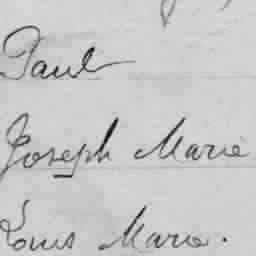 Paul
Joseph Marie
Louis Marie.